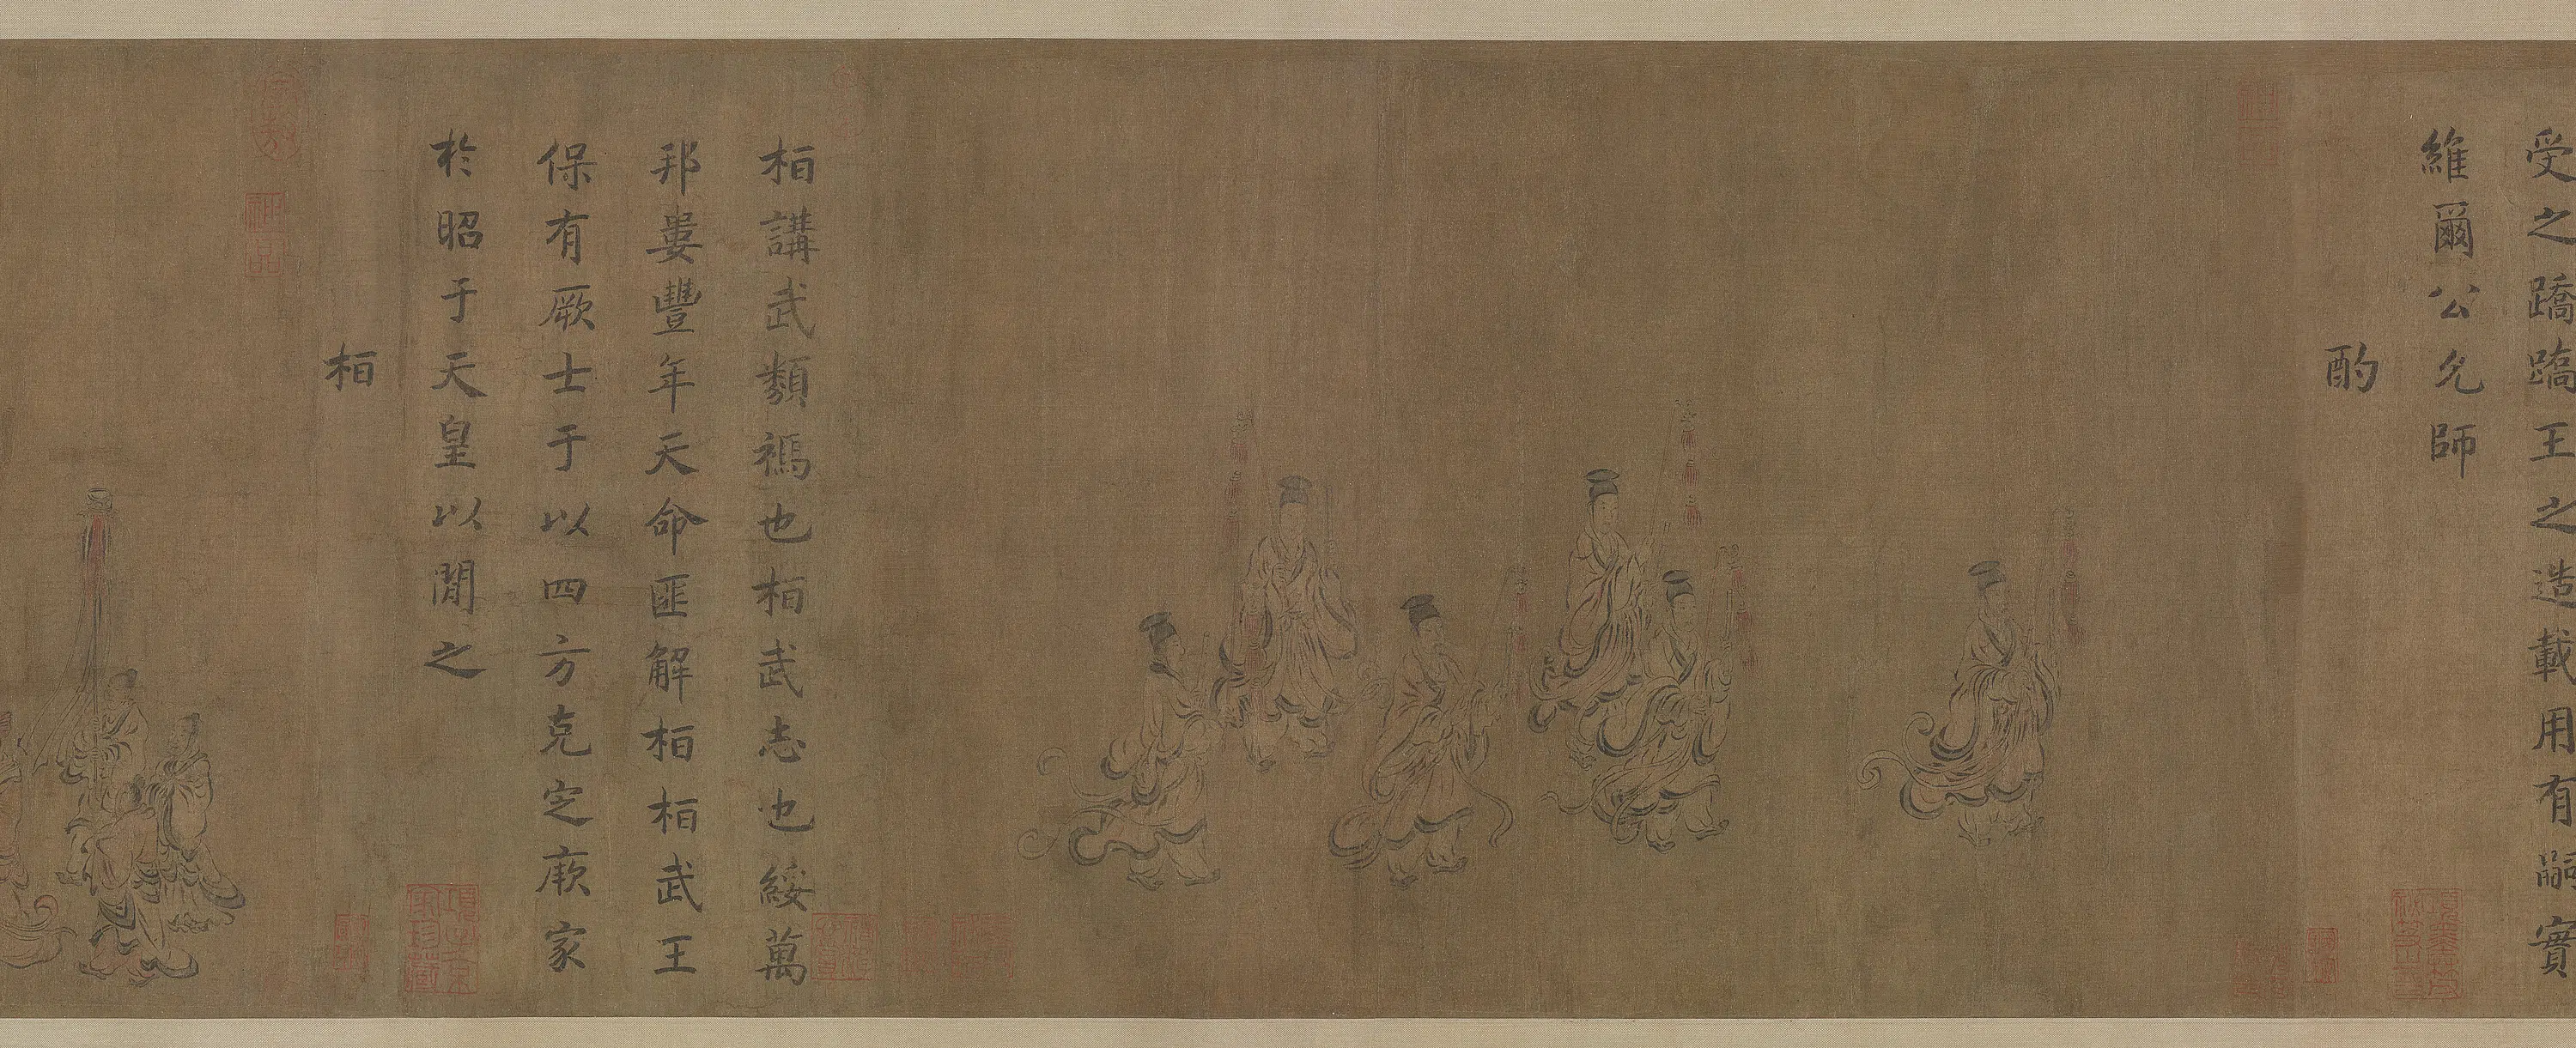 受之蹻蹻王之造載用有嗣實
維爾公允師
酌
桓講武類禡也桓武志也綏萬
邦婁豐年天命匪解桓桓武王
保有厥士于以四方克定厥家
於昭于天皇以閒之
桓
項子京家珍藏
神品